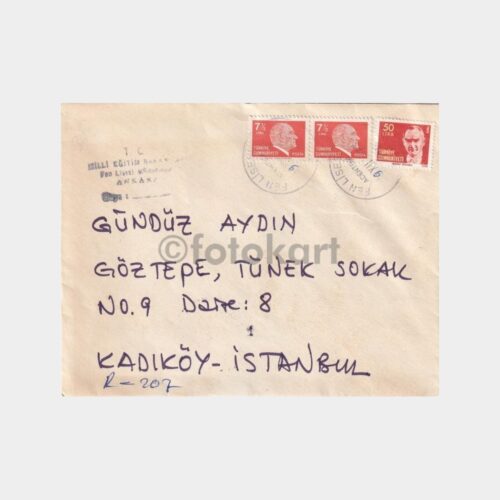 7½ LİRA
TÜRKİYE CUMHURİYETİ
POSTA
7½ LİRA
TÜRKİYE CUMHURİYETİ
POSTA
50 LİRA
TÜRKİYE CUMHURİYETİ
FEN LİSE
FEN LİSE
T C
MİLLİ EĞİTİM
Fen Lisesi
ANKARA
GÜNDÜZ AYDIN
©fotokart
GÖZTEPE, TÜNEK SOKAK
NO.9 Daire: 8
KADIKÖY-İSTANBUL
R-207